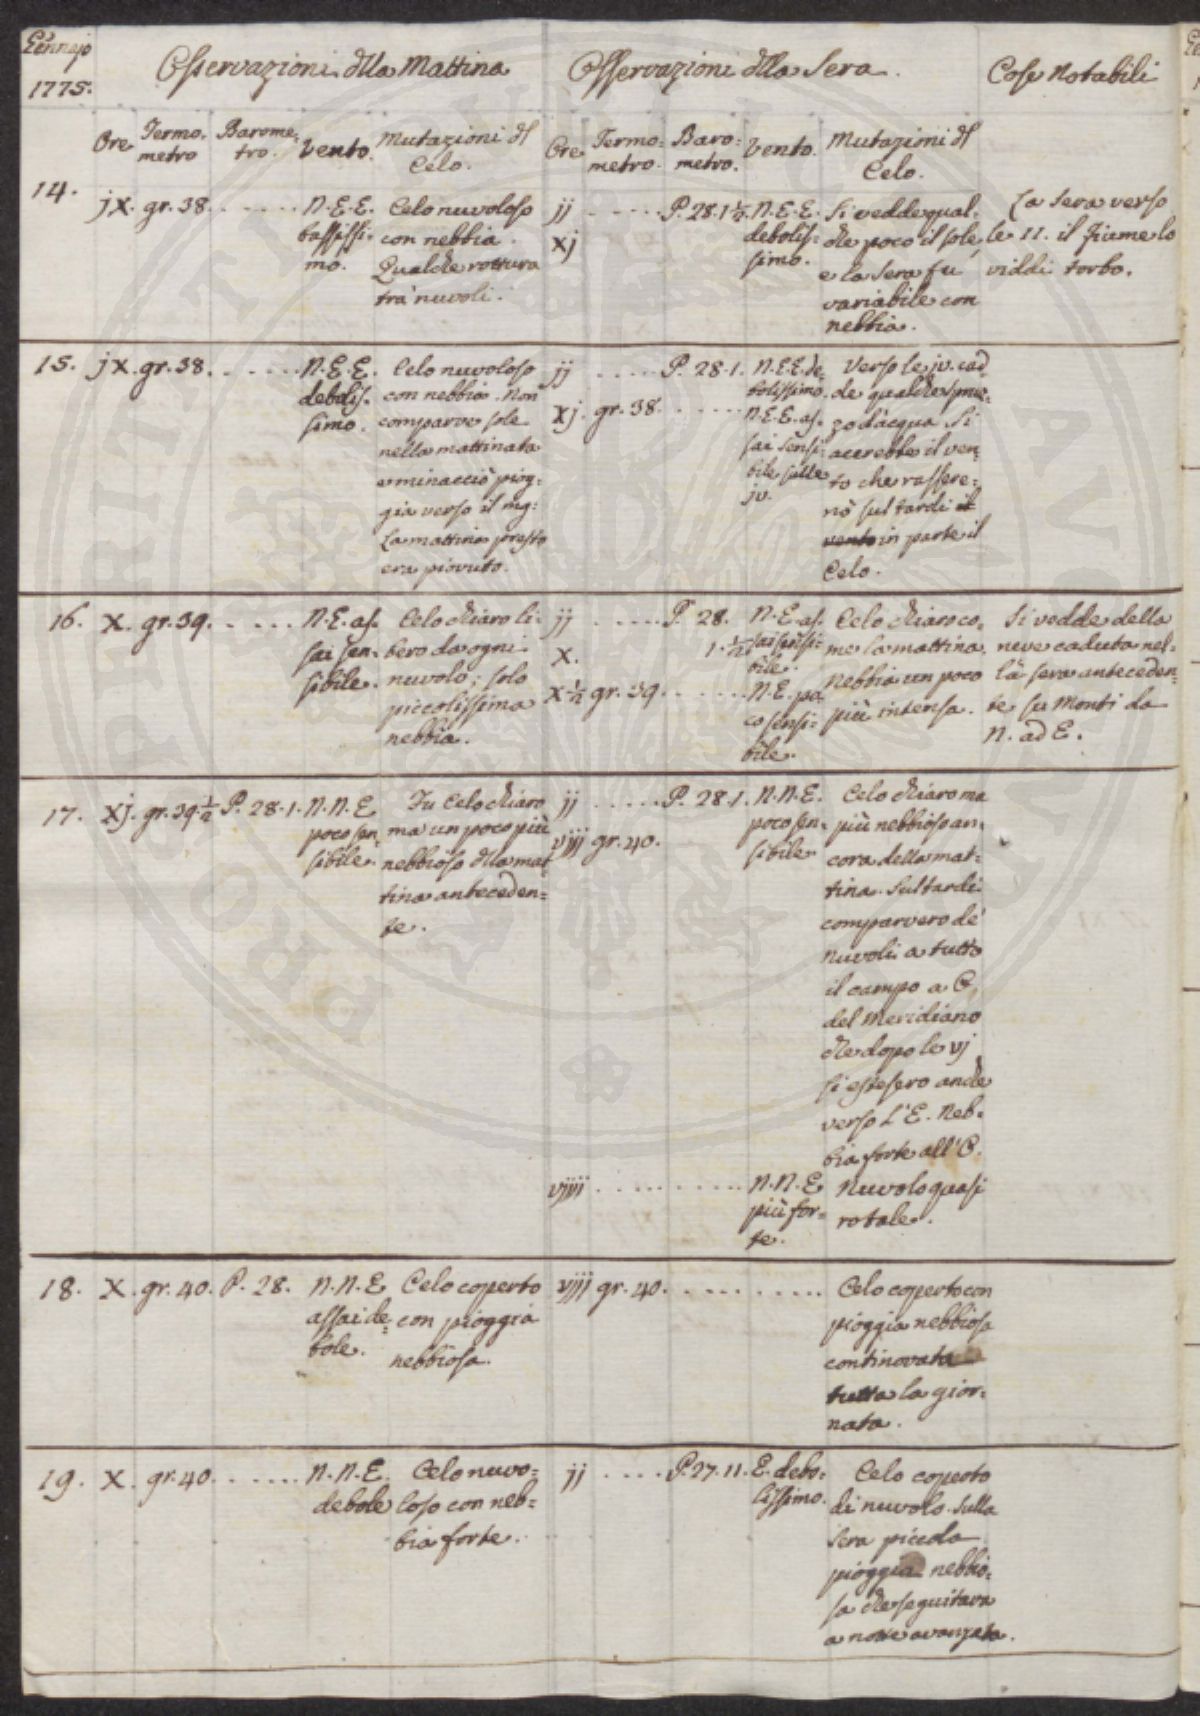 Gennajo
1775.
Osservazioni dlla Mattina
Osservazioni dlla Sera.
Cose Notabili
Ore
Termo-
metro
Barome-
tro.
Vento.
Mutazioni dl
Celo.
Ore
Termo-
metro.
Baro-
metro.
Vento.
Mutazioni dl
Celo.
14.
jx. gr. 38. . . . . . .
N.E.E.
bassissi-
mo.
Celo nuvoloso
con nebbia.
Qualche rottura
tra' nuvoli.
jj . . . . .
xj
P. 28.1½.
N.E.E.
debolis-
simo.
Si vedde qual-
che poco il sole,
e la sera fu
variabile con
nebbia.
La sera verso
le 11. il fiume lo
viddi torbo.
15.
jx. gr. 38. . . . . . .
N.E.E.
debolis-
simo.
Celo nuvoloso
con nebbia. Non
comparve sole
nella mattinata
e minacciò piog-
gia verso il mg:
La mattina presto
era piovuto.
jj . . . . .
P. 28.1.
N.E.E. de
bolissimo.
xj. gr. 38. . . . . .
N.E.E. as-
sai sensi-
bile sulle
jv.
Verso le jv. cad
de qualche spruz-
zo d'acqua. Si
accrebbe il ven-
to che rassere-
nò sul tardi il
vento in parte il
Celo.
16.
x. gr. 39. . . . . .
N.E. as-
sai sen-
sibile.
Celo chiaro li-
bero da ogni
nuvolo; solo
piccolissima
nebbia.
jj . . . . .
P. 28.
1.½
N.E. as-
sai sensi-
bile.
x.
x½ gr. 39. . . . . . .
N.E. po
co sensi-
bile.
Celo chiaro co-
me la mattina.
Nebbia un poco
più intensa.
Si vedde della
neve caduta nel-
la sera anteceden-
te su Monti da
N. ad E.
17.
xj. gr. 39.½
P. 28.1.
N.N.E
poco sen-
sibile.
Fu Celo chiaro
ma un poco più
nebbioso dlla mat-
tina anteceden-
te.
jj . . . . .
P. 28.1.
N.N.E.
poco sen-
sibile
viij gr. 40.
Celo chiaro ma
più nebbioso an-
cora della mat-
tina. Sul tardi
comparvero de'
nuvoli a tutto
il campo a O.
del Meridiano
che dopo le vj
si estesero anche
verso L'E. Neb-
bia forte all'O.
viiij . . . . . . . . . .
N.N.E
più for-
te.
Nuvolo quasi
totale.
18.
x. gr. 40.
P. 28.
N.N.E
assai de-
bole.
Celo coperto
con pioggia
nebbiosa.
viij gr. 40. . . . . . . . . . .
Celo coperto con
pioggia nebbiosa
continovata
tutta la gior-
nata.
19.
x. gr. 40. . . . . . .
N.N.E.
debole
Celo nuvo-
loso con neb-
bia forte.
jj . . . .
P. 27.11.
E. debo-
lissimo.
Celo coperto
di nuvolo. Sulla
sera piccola
pioggia nebbio-
sa che seguitava
a notte avanzata.